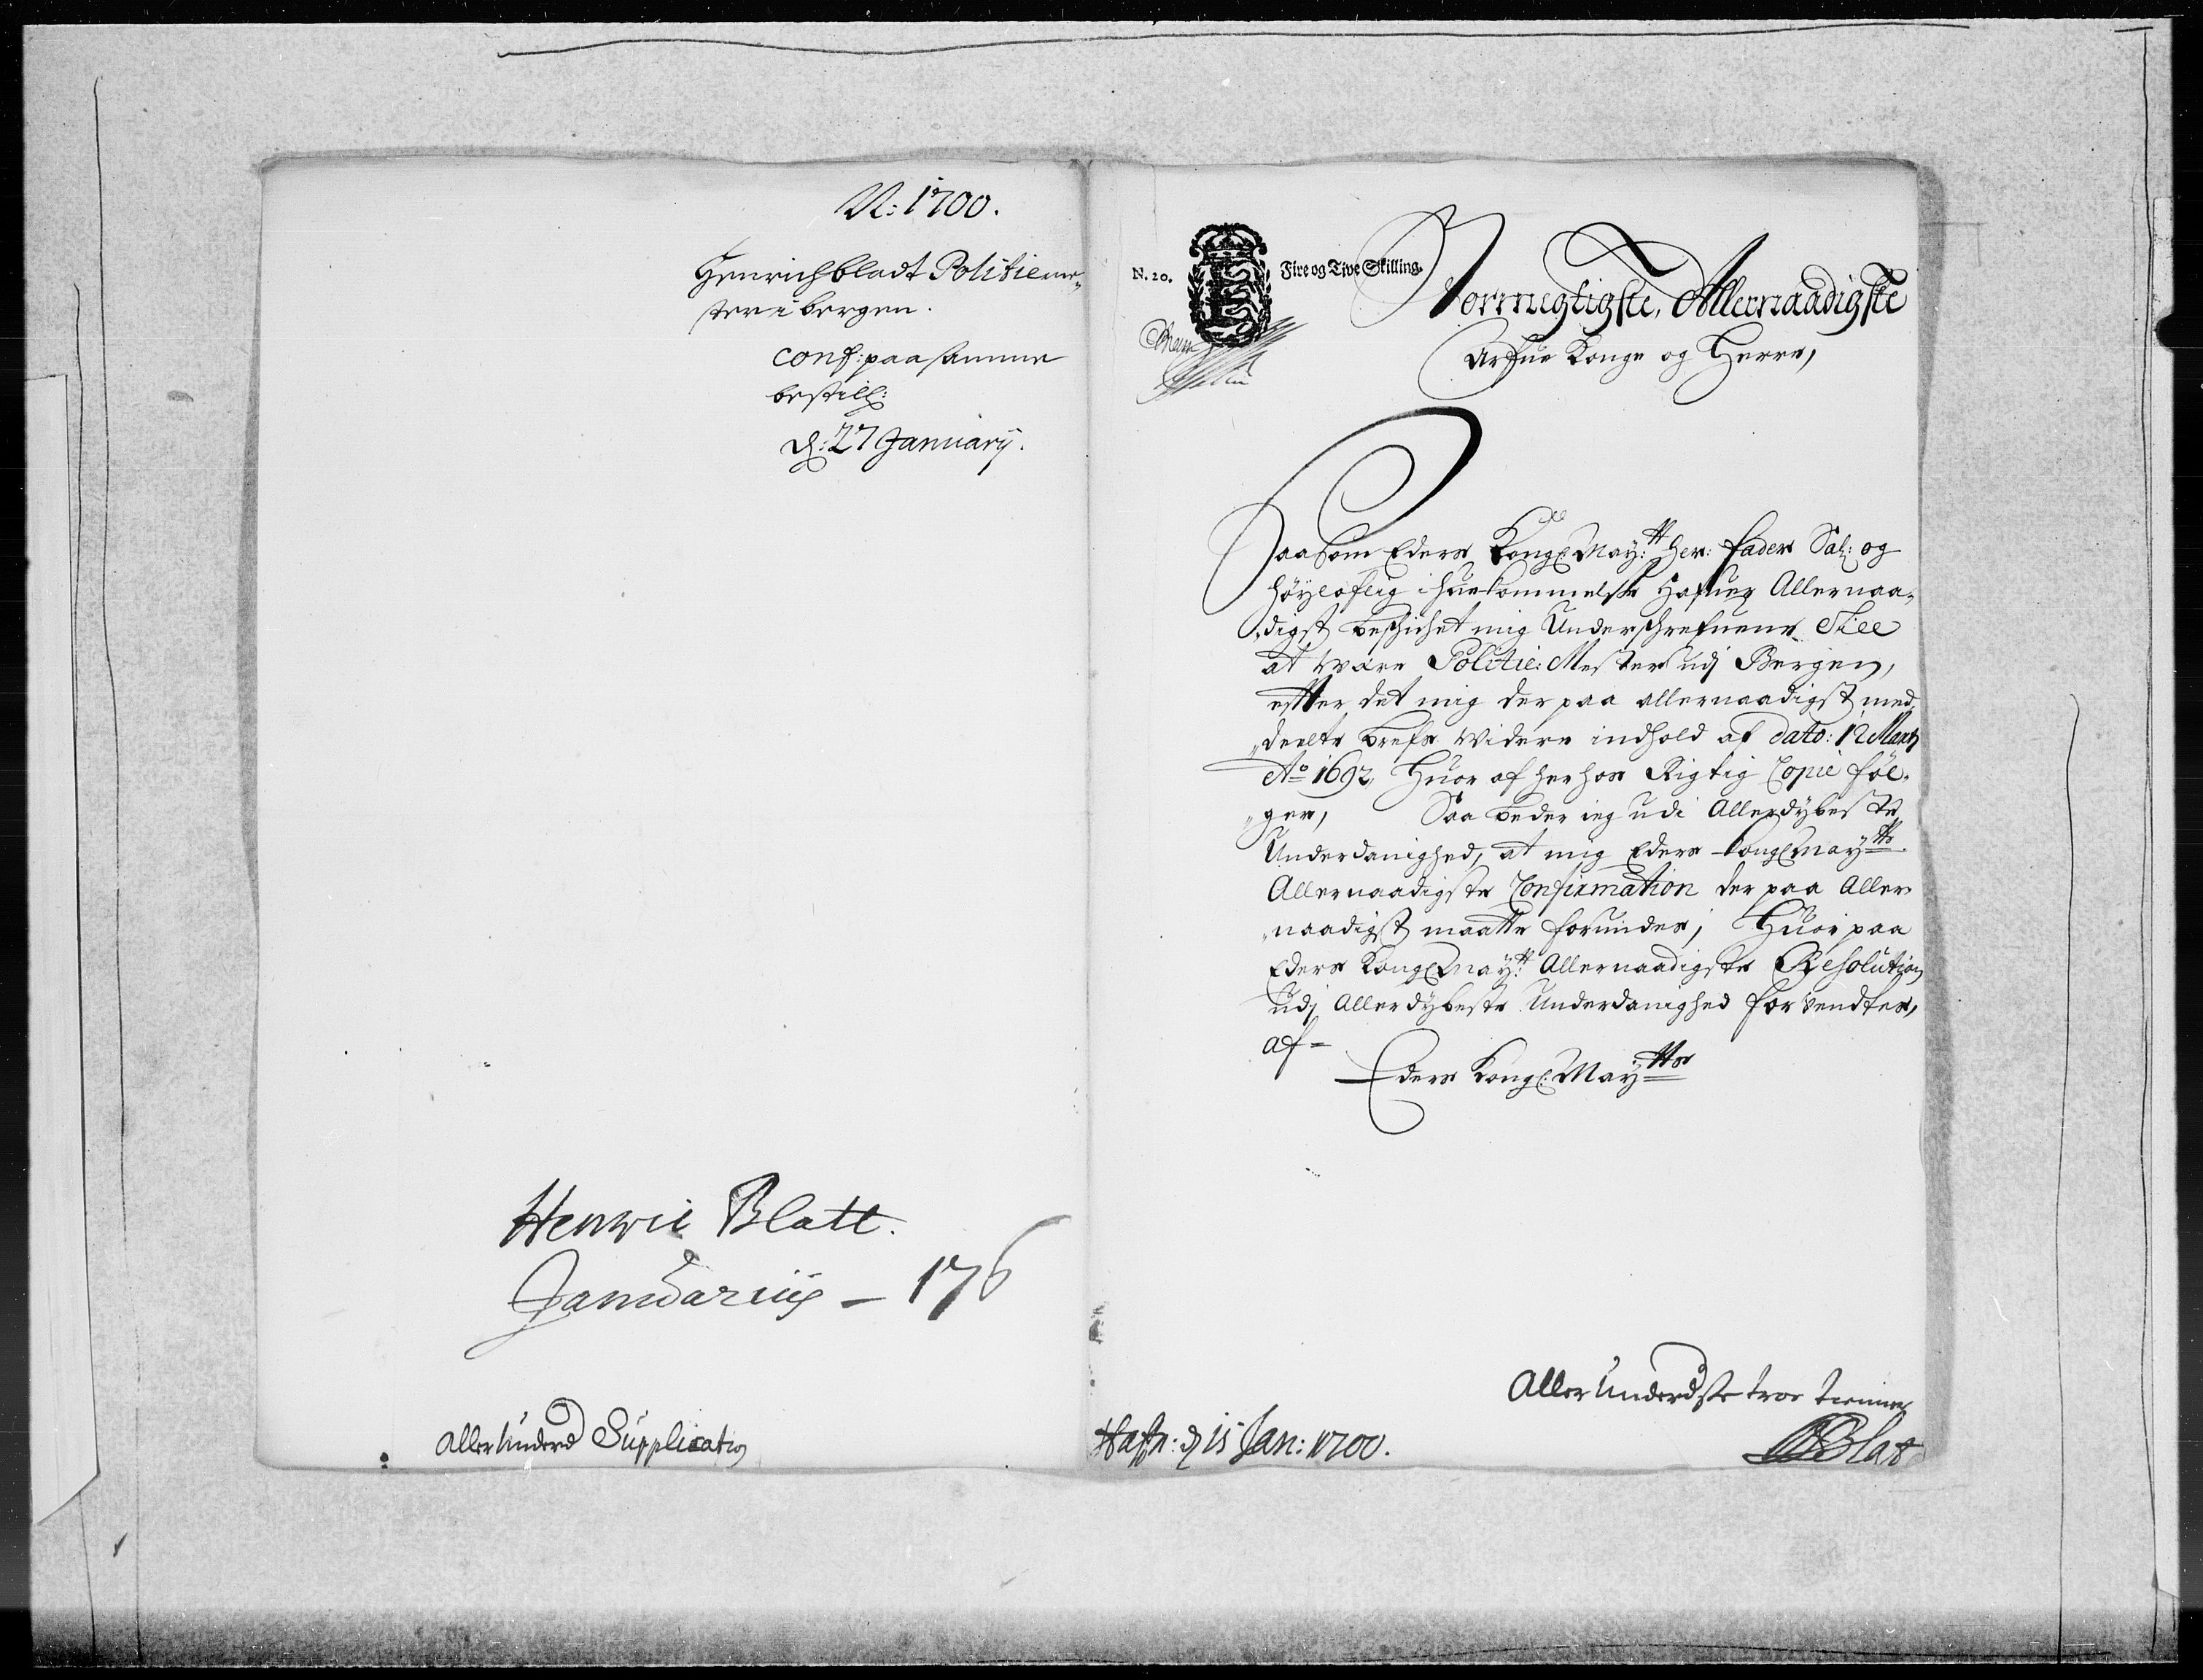 N: 1700.
Henrich bladt Politieme„
ster i bergen.
conf: paa samme
bestill:
d: 27 Januarij.
Henric Blatt.
Januariij – 170
Aller Underd Supplication
N. 20.
Fire og Tive Skilling.
Stormegtigste, Allernaadigste
Arfue Konge og Herre,
Saasom Eders Kongl May:tt Her: fader Sal: og
höyloflig ihuekommelse Hafuer Allernaa„
„digst beschichet mig Underschrefuene Till
at være Politie: Mester udj Bergen,
etter det mig der paa allernaadigst med„
„deelte brefs videre indhold af dato: 12 Marty
Ao 1692, Huor af her hos Rigtig Copie föl„
„ger, Saa beder ieg udi Allerdybeste
Underdanighed, at mig Eders Kongl Maytts
Allernaadigste Confirmation der paa Aller„
„naadigst maatte forundes; Huor paa
Eders Kongl May:tts Allernaadigste Resolution
udj Allerdybeste Underdanighed forvendtes,
af =
Eders Kongl: Maytts
Aller Underdste troe tienner
Hafn: d 15 Jan: 1700.
HBlat